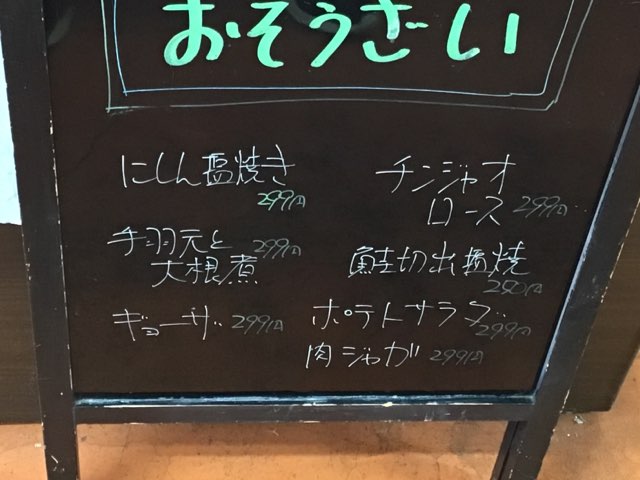 おそうざい
にしん塩焼き
299円
手羽元と 299円
大根煮
ギョーザ 299円
チンジャオ
ロース 299円
鮭切出塩焼
250円
ポテトサラダ
299円
肉ジャガ 299円